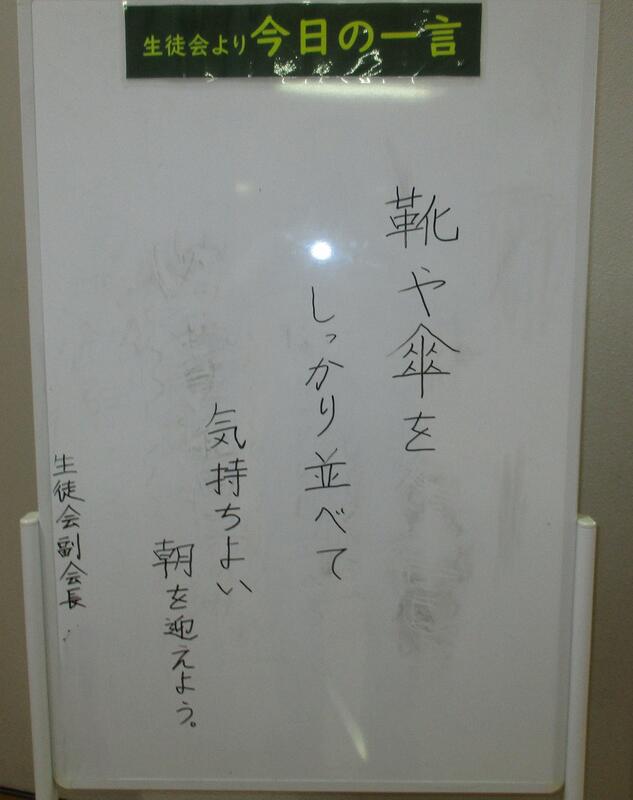 生徒会より今日の一言
靴や傘を
しっかり並べて
気持ちよい
朝を迎えよう。
生徒会副会長